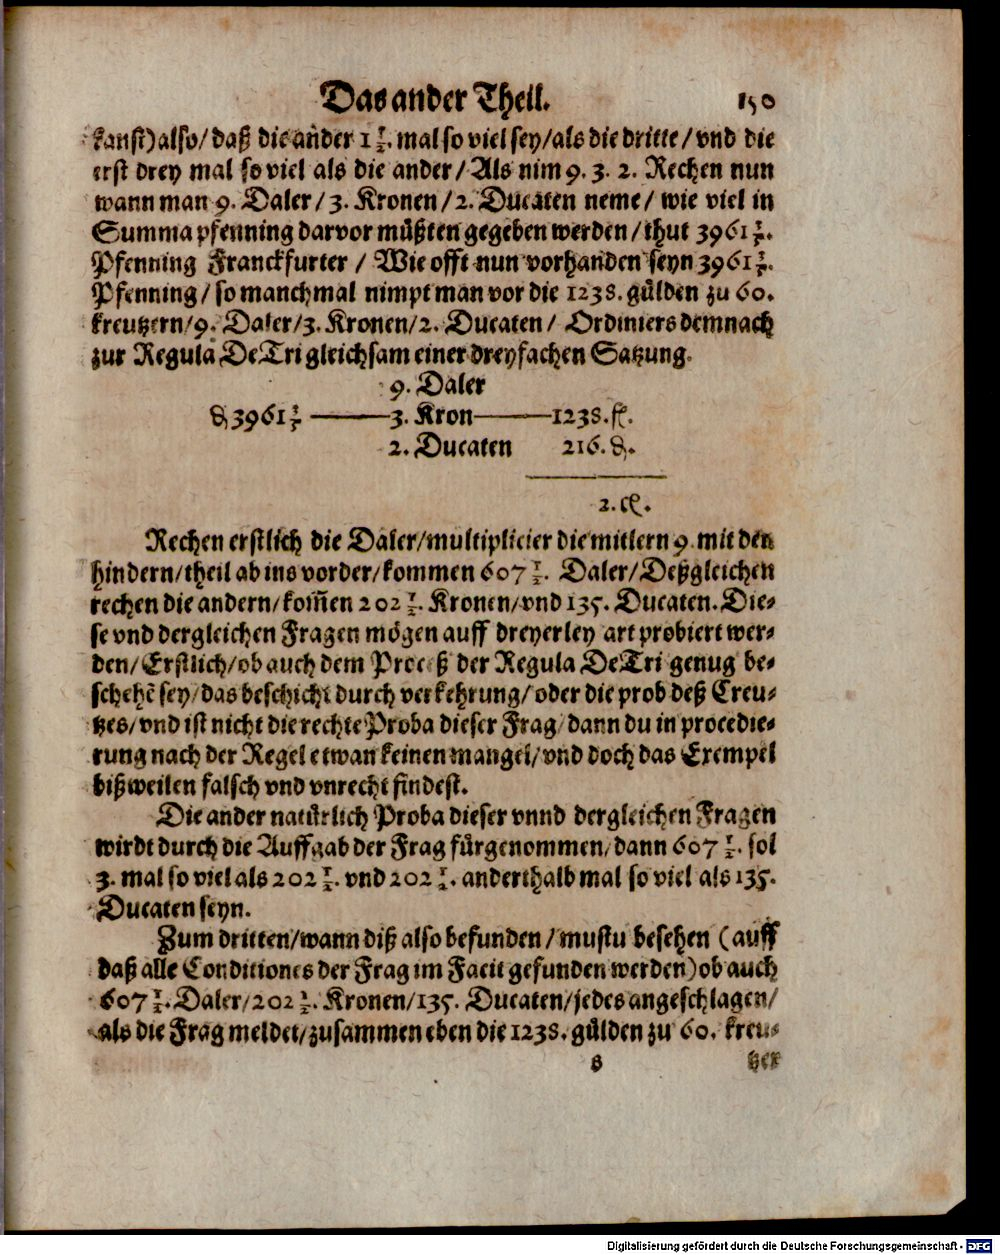 Das ander Theil. 150
kanst) also/ daß die ander 1 1/2. mal so viel sey/ als die dritte/ vnd die
erst drey mal so viel als die ander/ Als nim 9. 3. 2. Rechen nun
wann man 9. Daler/ 3. Kronen/ 2. Ducaten neme/ wie viel in
Summa pfenning darvor müßten gegeben werden/ thut 3961 3/5.
Pfenning Franckfurter / Wie offt nun vorhanden seyn 3961 3/5.
Pfenning/ so manchmal nimpt man vor die 1238. gülden zu 60.
kreutzern/ 9. Daler/ 3. Kronen/ 2. Ducaten/ Ordiniers demnach
zur Regula DeTri gleichsam einer dreyfachen Satzung.
9. Daler
₰ 3961 3/5 — 3. Kron — 1238. fl.
2. Ducaten 216. ₰.
2.
Rechen erstlich die Daler/ multiplicier die mitlern 9. mit den
hindern/ theil ab ins vorder/ kommen 607 1/2. Daler/ Deßgleichen
rechen die andern/ kom̃en 202 1/2. Kronen/ vnd 135. Ducaten. Die-
se vnd dergleichen Fragen mögen auff dreyerley art probiert wer-
den/ Erstlich/ ob auch dem Proceß der Regula DeTri genug be-
schehẽ sey/ das beschicht durch verkehrung/ oder die prob deß Creu-
tzes/ vnd ist nicht die rechte Proba dieser Frag/ dann du in procedie-
rung nach der Regel etwan keinen mangel/ vnd doch das Exempel
bißweilen falsch vnd vnrecht findest.
Die ander natürlich Proba dieser vnnd dergleichen Fragen
wirdt durch die Auffgab der Frag fürgenommen/ dann 607 1/2. sol
3. mal so viel als 202 1/2. vnd 202 1/2. anderthalb mal so viel als 135.
Ducaten seyn.
Zum dritten/ wann diß also befunden / mustu besehen (auff
daß alle Conditiones der Frag im Facit gefunden werden) ob auch
607 1/2. Daler/ 202 1/2. Kronen/ 135. Ducaten/ jedes angeschlagen/
als die Frag meldet/ zusammen eben die 1238. gülden zu 60. kreu-
tzer
Digitalisierung gefördert durch die Deutsche Forschungsgemeinschaft - DFG